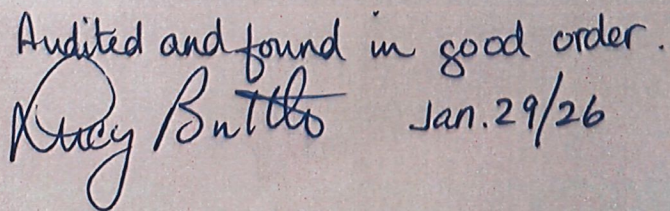 Audited and found in good order.
Lucy Jan. 29/26